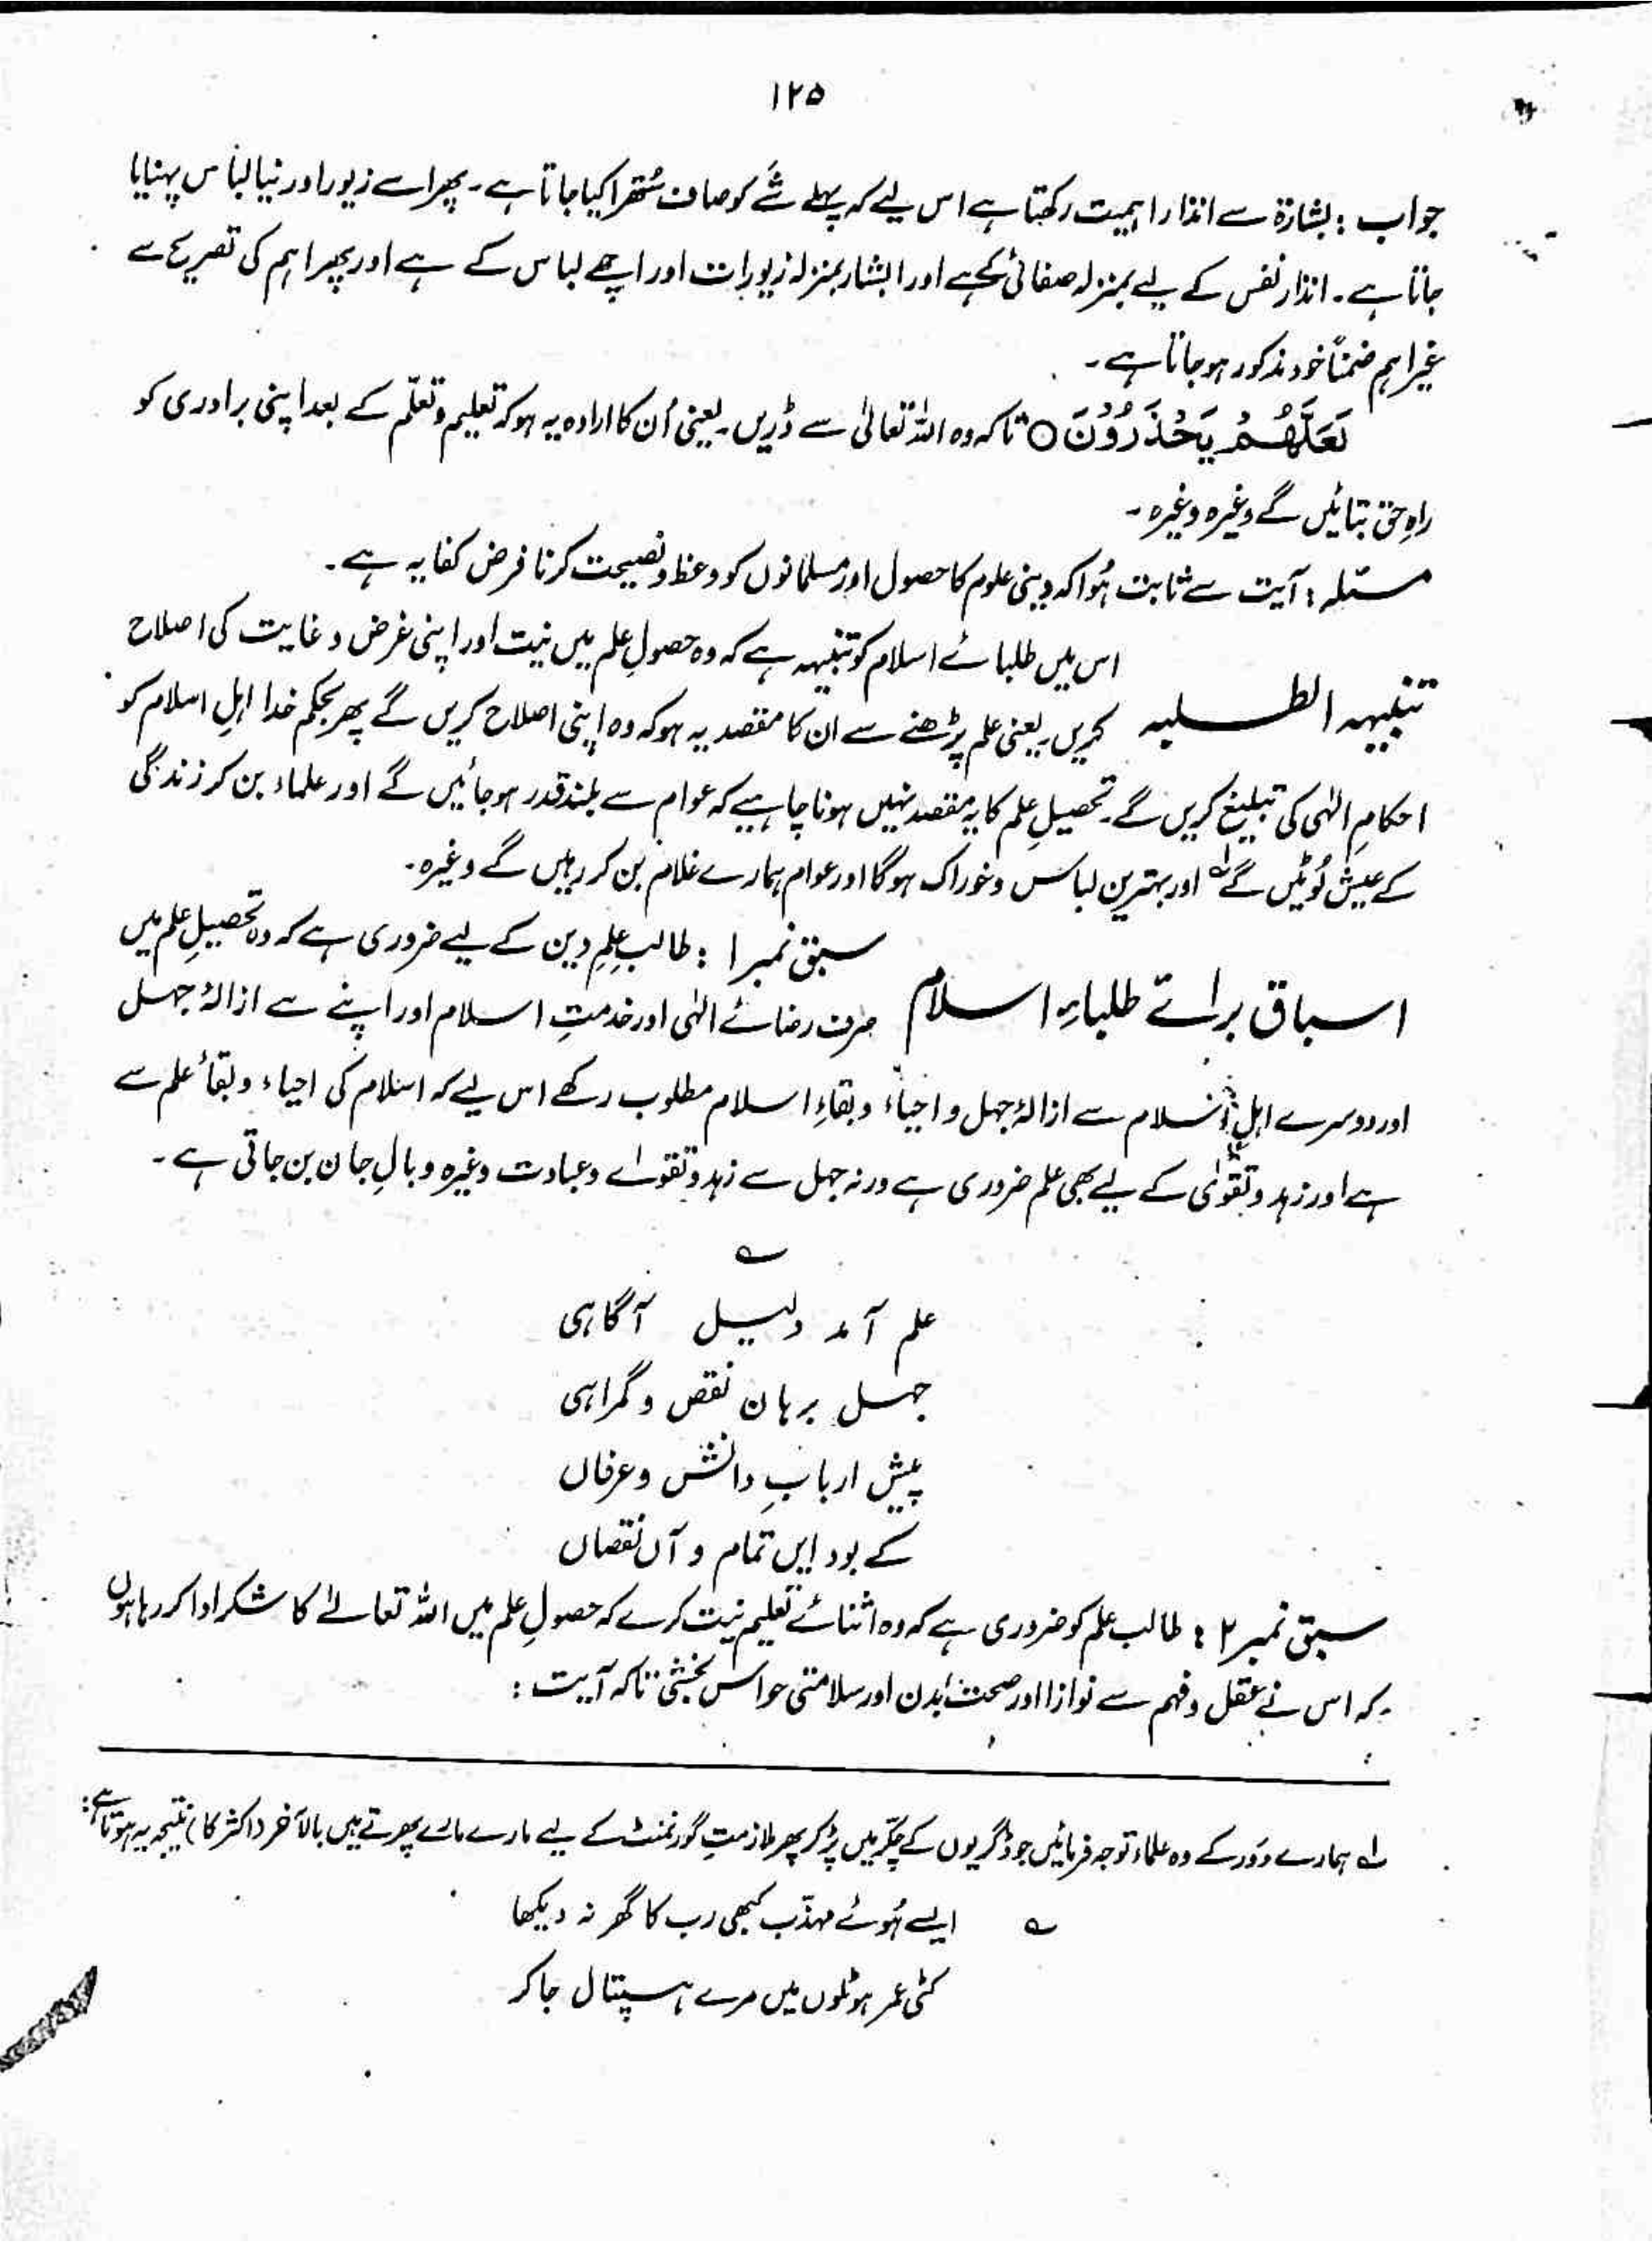 ۱۲۵
جواب : بشارۃ سے انذار اہمیت رکھتا ہے اس لیے کہ پہلے شَے کو صاف سُتھرا کیا جاتا ہے۔ پھر اسے زیور اور نیا لباس پہنایا
جاتا ہے۔ انذار نفس کے لیے بمنزلہ صفائی کے ہے اور ابشار بمنزلہ زیورات اور اچھے لباس کے ہے اور پھر اہم کی تصریح سے
غیر اہم ضمناً خود مذکور ہو جاتا ہے۔
لَعَلَّهُمْ يَحْذَرُوْنَ ○ تاکہ وہ اللہ تعالیٰ سے ڈریں۔ یعنی اُن کا ارادہ یہ ہو کہ تعلیم و تعلّم کے بعد اپنی برادری کو
راہِ حق بتائیں گے وغیرہ وغیرہ۔
مسئلہ : آیت سے ثابت ہُوا کہ دینی علوم کا حصول اور مسلمانوں کو وعظ و نصیحت کرنا فرض کفایہ ہے۔
اس میں طلبائے اسلام کو تنبیہہ ہے کہ وہ حصولِ علم میں نیت اور اپنی غرض و غایت کی اصلاح
تنبیہہ الطلبہ کریں۔ یعنی علم پڑھنے سے ان کا مقصد یہ ہو کہ وہ اپنی اصلاح کریں گے پھر بحکم خدا اہلِ اسلام کو
احکامِ الٰہی کی تبلیغ کریں گے۔ تحصیلِ علم کا یہ مقصد نہیں ہونا چاہیے کہ عوام سے بلند قدر ہو جائیں گے اور علماء بن کر زندگی
کے عیش لُوٹیں گے لہ اور بہترین لباس و خوراک ہوگا اور عوام ہمارے غلام بن کر رہیں گے وغیرہ۔
سبق نمبر ۱ : طالب علمِ دین کے لیے ضروری ہے کہ وہ تحصیلِ علم میں
اسباق برائے طلباءِ اسلام صرف رضائے الٰہی اور خدمتِ اسلام اور اپنے سے ازالۂ جہل
اور دوسرے اہلِ اسلام سے ازالۂ جہل و احیاء و بقاءِ اسلام مطلوب رکھے اس لیے کہ اسلام کی احیاء و بقاء علم سے
ہے اور زہد و تقویٰ کے لیے بھی علم ضروری ہے ورنہ جہل سے زہد و تقوے و عبادت وغیرہ وبالِ جان بن جاتی ہے۔
؎
علم آمد دلیل آگاہی
جہل برہان نقص و گمراہی
پیش اربابِ دانش و عرفاں
کے بود ایں تمام و آں نقصاں
سبق نمبر ۲ : طالب علم کو ضروری ہے کہ وہ اثنائے تعلیم نیت کرے کہ حصولِ علم میں اللہ تعالےٰ کا شکر ادا کر رہا ہوں
کہ اس نے عقل و فہم سے نوازا اور صحت بدن اور سلامتی حواس بخشی تاکہ آیت :
لہ ہمارے دَور کے وہ علماء توجہ فرمائیں جو ڈگریوں کے چکّر میں پڑ کر پھر ملازمتِ گورنمنٹ کے لیے مارے مارے پھرتے ہیں بالآخر (اکثر کا) نتیجہ یہ ہوتا ہے :
؎ ایسے ہُوئے مہذّب کبھی رب کا گھر نہ دیکھا
کٹی عمر ہوٹلوں میں مرے ہسپتال جا کر